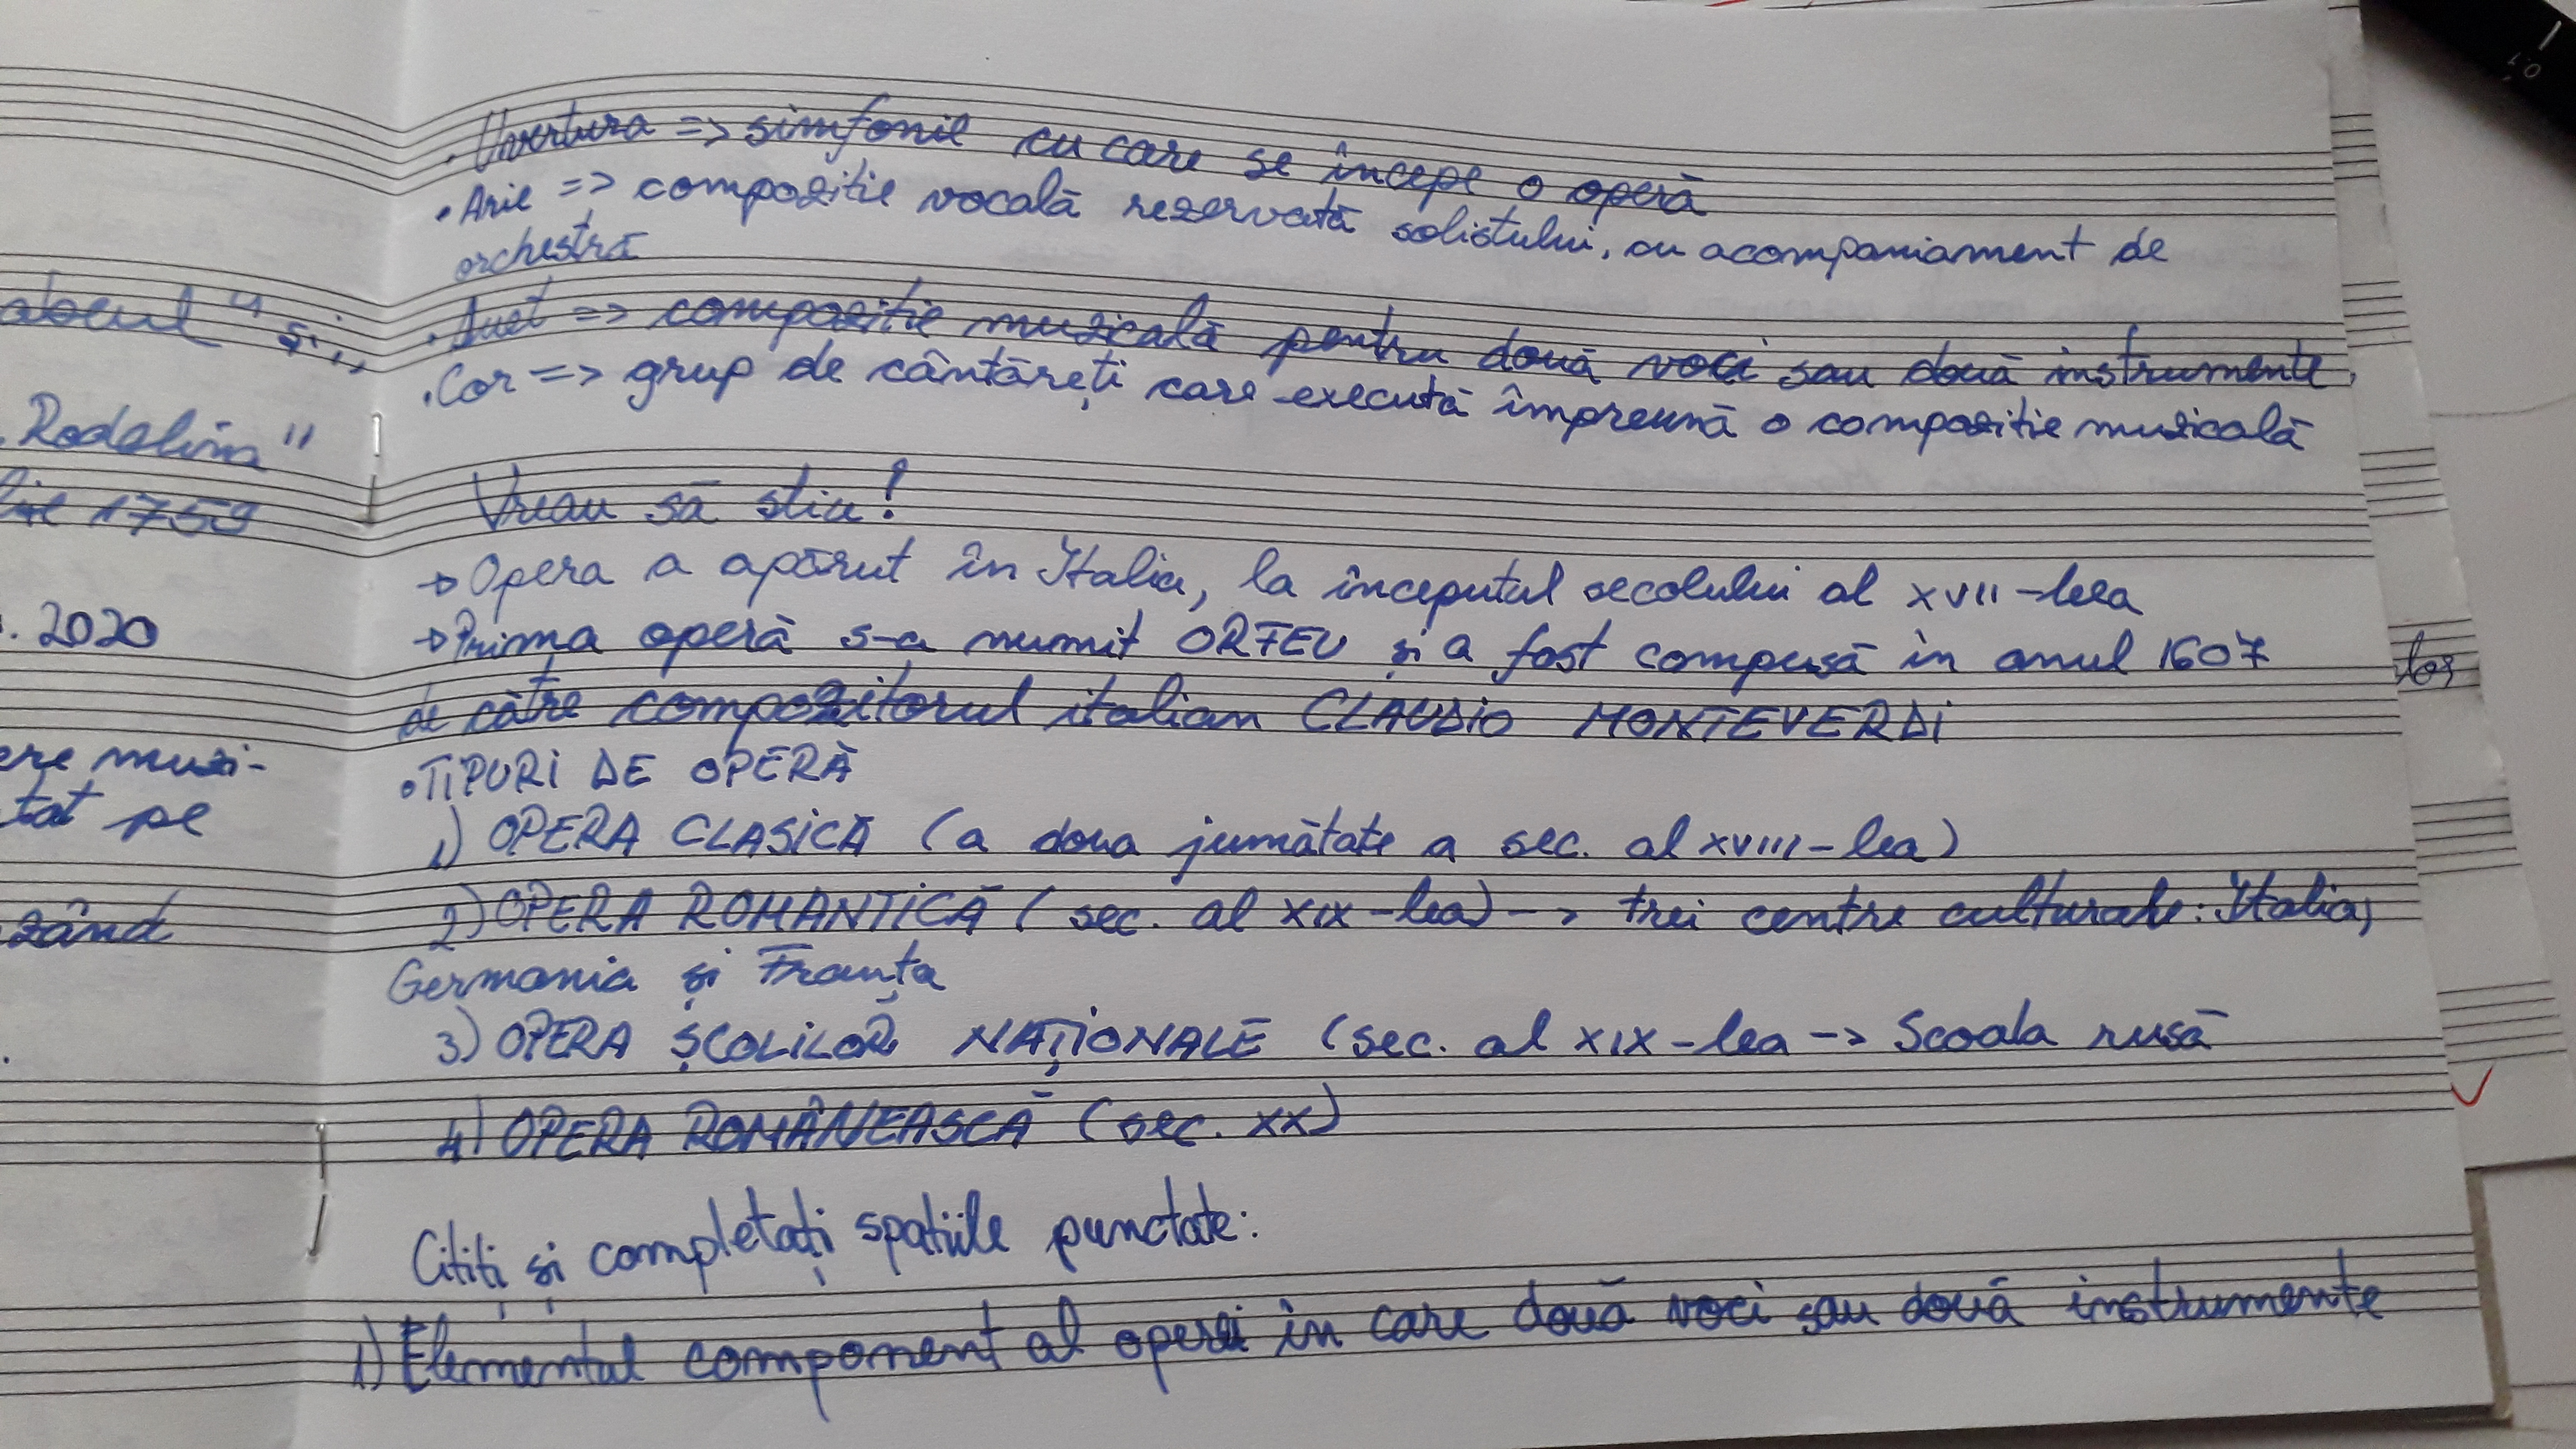 abcul" și,,
Rodelin"
1759
. 2020
ere muzi-
tat pe
zând
• Uvertura => simfonie cu care se începe o operă
• Arie => compoziție vocală rezervată solistului, cu acompaniament de
orchestră
• Duet => compoziție muzicală pentru două voci sau două instrumente
• Cor => grup de cântăreți care execută împreună o compoziție muzicală
Vreau să știu!
→ Opera a apărut în Italia, la începutul secolului al XVII-lea
→ Prima operă s-a numit ORFEU și a fost compusă în anul 1607
de către compozitorul italian CLAUDIO MONTEVERDI
• TIPURI DE OPERĂ
1) OPERA CLASICĂ (a doua jumătate a sec. al XVIII-lea)
2) OPERA ROMANTICĂ (sec. al XIX-lea) -> trei centre culturale: Italia,
Germania și Franța
3) OPERA ȘCOLILOR NAȚIONALE (sec. al XIX-lea -> Scoala rusă
4) OPERA ROMÂNEASCĂ (sec. XX)
Citiți și completați spatiile punctate:
1) Elementul component al operei în care două voci sau două instrumente